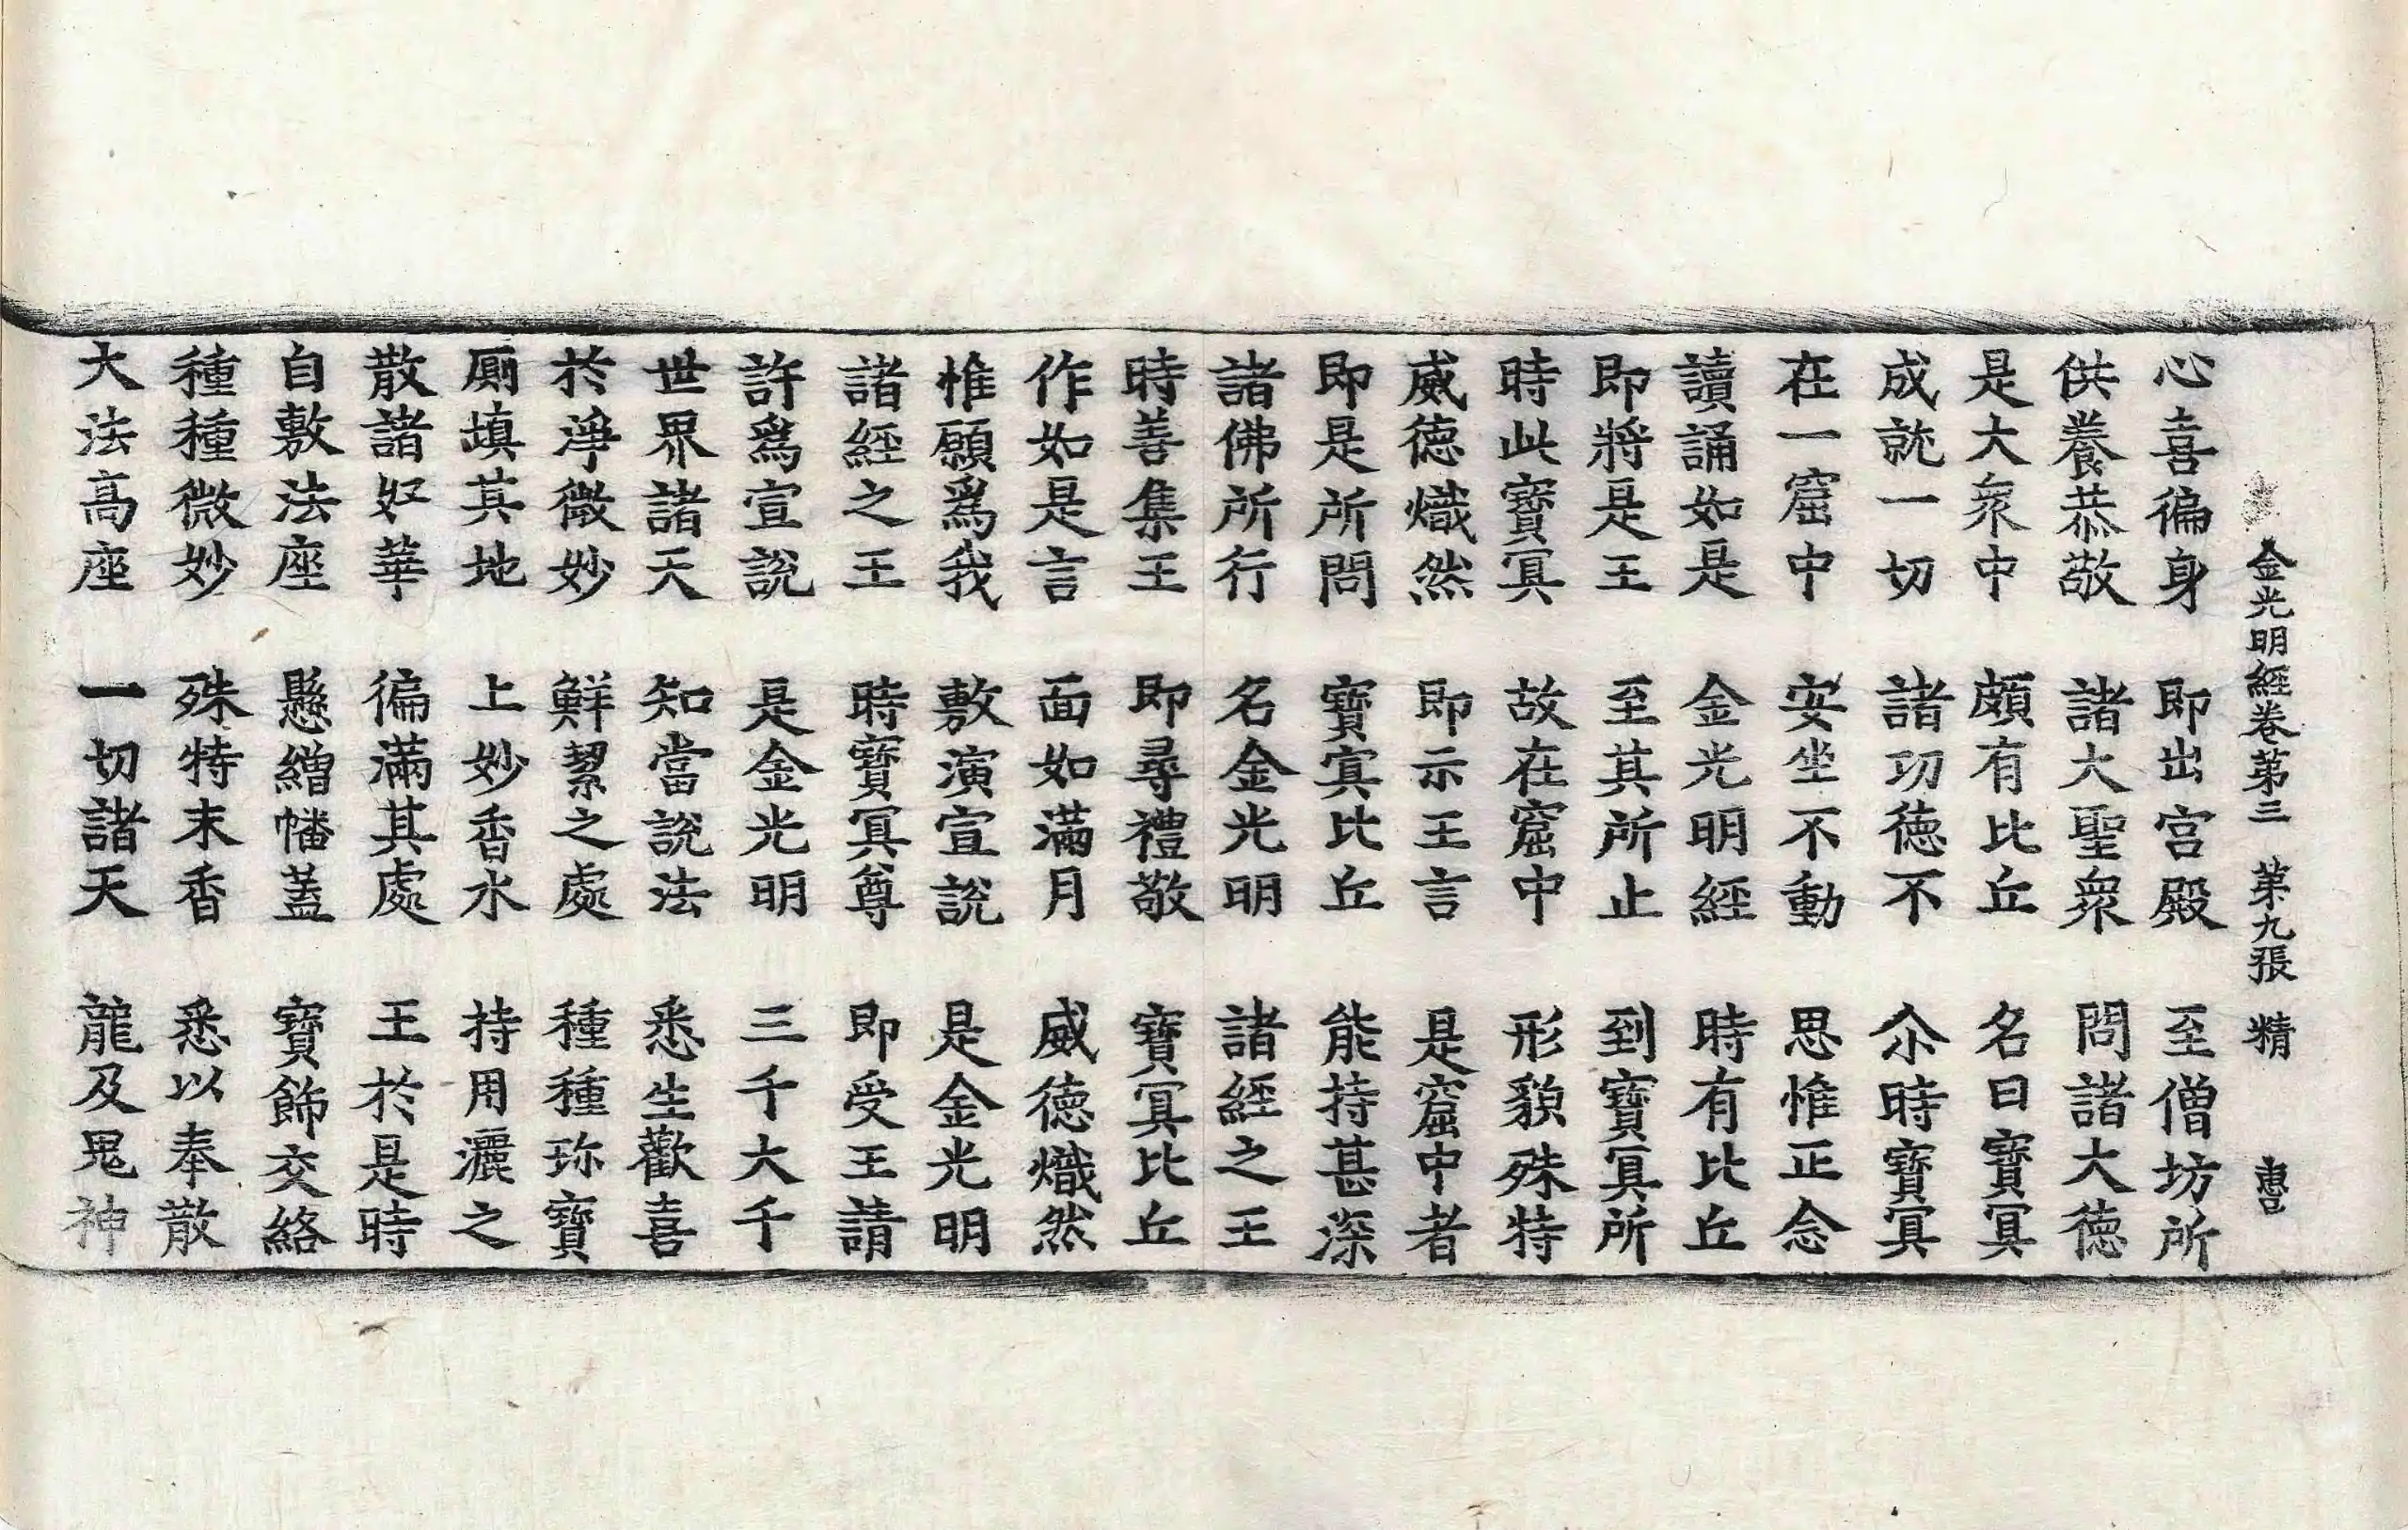 金光明經卷第三 第九張 精
心喜徧身 即出宮殿 至僧坊所
供養恭敬 諸大聖衆 問諸大德
是大衆中 頗有比丘 名曰寶冥
成就一切 諸功德不 尒時寶冥
在一窟中 安坐不動 思惟正念
讀誦如是 金光明經 時有比丘
即將是王 至其所止 到寶冥所
時此寶冥 故在窟中 形貌殊特
威德熾然 即示王言 是窟中者
即是所問 寶冥比丘 能持甚深
諸佛所行 名金光明 諸經之王
時善集王 即尋禮敬 寶冥比丘
作如是言 面如滿月 威德熾然
惟願爲我 敷演宣說 是金光明
諸經之王 時寶冥尊 即受王請
許爲宣說 是金光明 三千大千
世界諸天 知當說法 悉生歡喜
於淨微妙 鮮絜之處 種種珎寶
廁塡其地 上妙香水 持用灑之
散諸好華 徧滿其處 王於是時
自敷法座 懸繒幡蓋 寶飾交絡
種種微妙 殊特末香 悉以奉散
大法高座 一切諸天 龍及鬼神